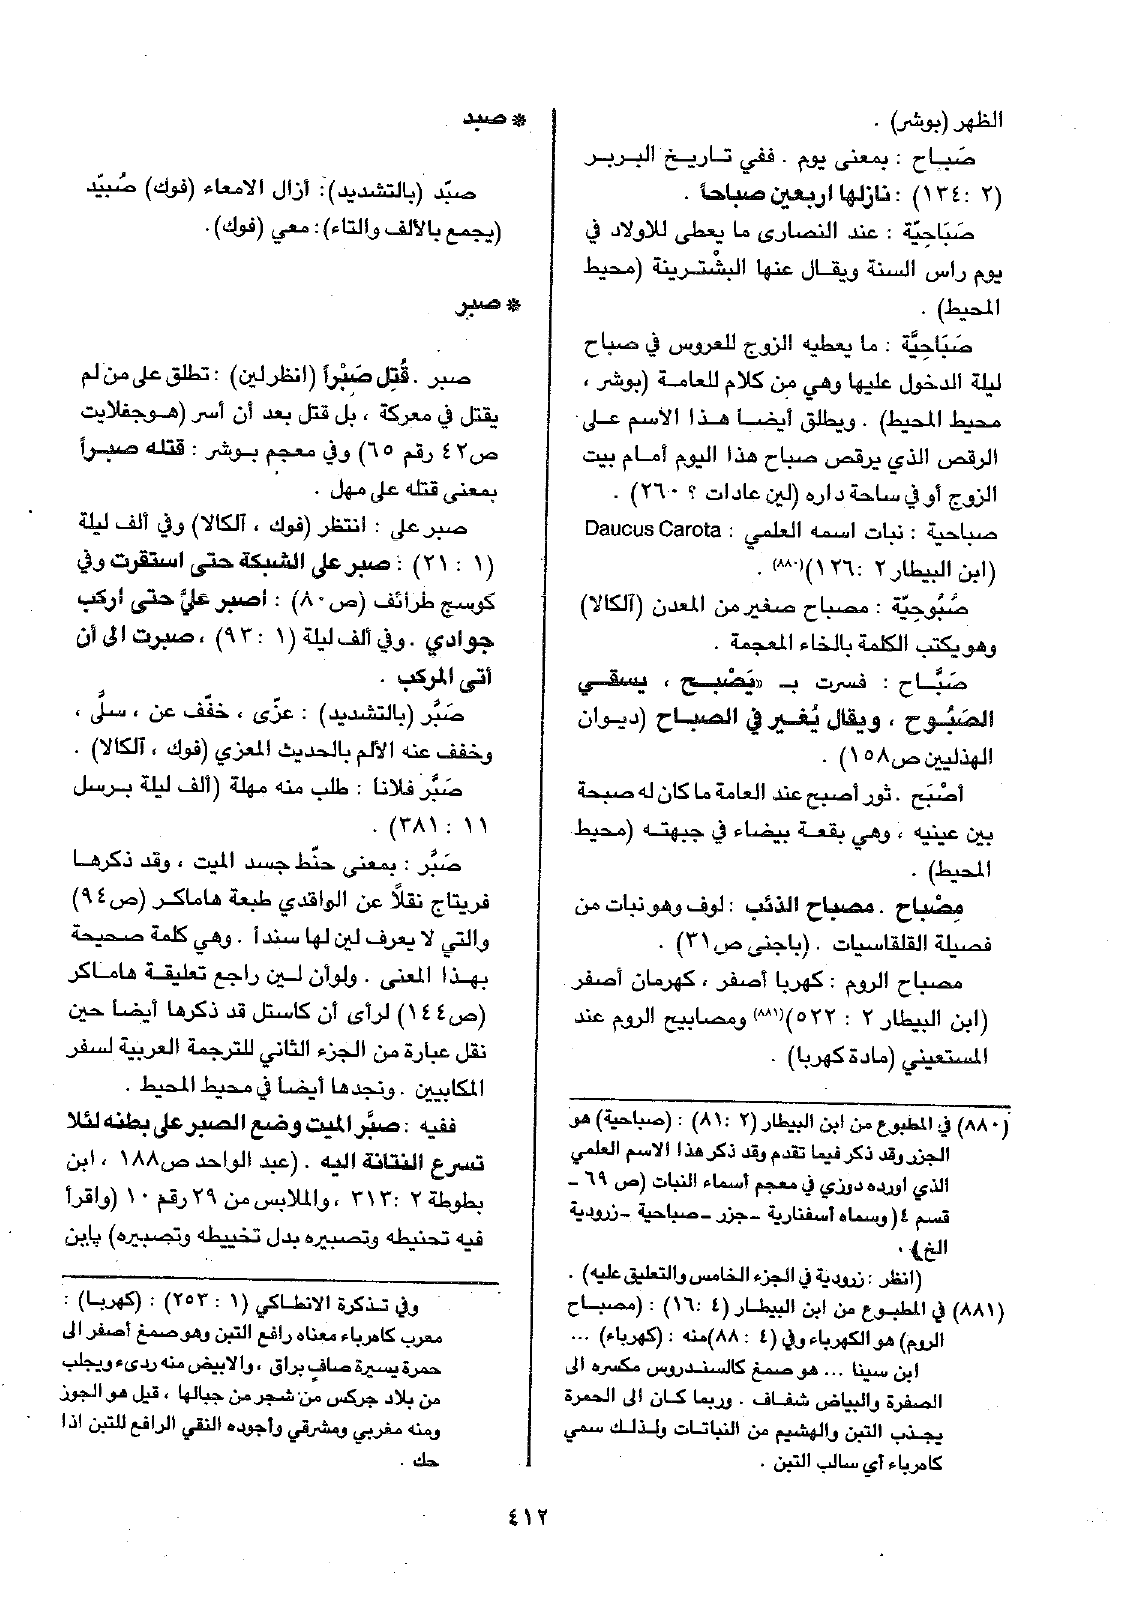 الظهر (بوشر) .
صَبَاح : بمعنى يوم . ففي تاريخ البربر
(٢ :١٣٤) : نازلها اربعين صباحاً .
صَبَاحِيّة : عند النصارى ما يعطى للاولاد في
يوم راس السنة ويقال عنها البشْترينة (محيط
المحيط) .
صَبَاحِيَّة : ما يعطيه الزوج للعروس في صباح
ليلة الدخول عليها وهي من كلام للعامة (بوشر ،
محيط المحيط) . ويطلق أيضا هذا الاسم على
الرقص الذي يرقص صباح هذا اليوم أمام بيت
الزوج أو في ساحة داره (لين عادات ؟ ٢٦٠) .
صباحية : نبات اسمه العلمي : Daucus Carota
(ابن البيطار ٢ :١٢٦)(٨٨٠) .
صُبُوحِيّة : مصباح صغير من المعدن (آلكالا)
وهو يكتب الكلمة بالخاء المعجمة .
صَبَّاح : فسرت بـ «يَصْبح ، يسقي
الصَبُوح ، ويقال يُغير في الصباح (ديوان
الهذليين ص١٥٨) .
أصْبَح . ثور أصبح عند العامة ما كان له صبحة
بين عينيه ، وهي بقعة بيضاء في جبهته (محيط
المحيط) .
مِصْباح . مصباح الذئب : لوف وهو نبات من
فصيلة القلقاسيات . (باجني ص٣١) .
مصباح الروم : كهربا أصفر ، كهرمان أصفر
(ابن البيطار ٢ : ٥٢٢)(٨٨١) ومصابيح الروم عند
المستعيني (مادة كهربا) .
(٨٨٠) في المطبوع من ابن البيطار (٢ :٨١) : (صباحية) هو
الجزر وقد ذكر فيما تقدم وقد ذكر هذا الاسم العلمي
الذي اورده دوزي في معجم أسماء النبات (ص ٦٩ -
قسم ٤) وسماه أسفنارية - جزر - صباحية - زرودية
الخ) .
(انظر : زرودية في الجزء الخامس والتعليق عليه) .
(٨٨١) في المطبوع من ابن البيطار (٤ :١٦) : (مصباح
الروم) هو الكهرباء وفي (٤ : ٨٨)منه : (كهرباء) ...
ابن سينا ... هو صمغ كالسندروس مكسره الى
الصفرة والبياض شفاف . وربما كان الى الحمرة
يجذب التبن والهشيم من النباتات ولذلك سمي
كامرباء أي سالب التبن .
* صبد
صبّد (بالتشديد): أزال الامعاء (فوك) صُبيّد
(يجمع بالألف والتاء): معي (فوك).
* صبر
صبر . قُتِل صَبْراً (انظر لين) : تطلق على من لم
يقتل في معركة ، بل قتل بعد أن أسر (هوجفلايت
ص٤٢ رقم ٦٥) وفي معجم بوشر : قتله صبراً
بمعنى قتله على مهل .
صبر على : انتظر (فوك ، آلكالا) وفي ألف ليلة
(١ : ٢١) : صبر على الشبكة حتى استقرت وفي
كوسج طرائف (ص٨٠) : اصبر عليَّ حتى اركب
جوادي . وفي ألف ليلة (١ : ٩٣) ، صبرت الى أن
أتى المركب .
صَبَّر (بالتشديد) : عزّى ، خفّف عن ، سلَّى ،
وخفف عنه الألم بالحديث المعزي (فوك ، آلكالا) .
صَبَّر فلانا : طلب منه مهلة (ألف ليلة برسل
١١ : ٣٨١) .
صَبَّر : بمعنى حنّط جسد الميت ، وقد ذكرها
فريتاج نقلاً عن الواقدي طبعة هاماكر (ص٩٤)
والتي لا يعرف لين لها سنداً . وهي كلمة صحيحة
بهذا المعنى . ولو أن لين راجع تعليقة هاماكر
(ص١٤٤) لرأى أن كاستل قد ذكرها أيضا حين
نقل عبارة من الجزء الثاني للترجمة العربية لسفر
المكابيين . ونجدها أيضا في محيط المحيط .
ففيه : صبَّر الميت وضع الصبر على بطنه لئلا
تسرع النتانة اليه . (عبد الواحد ص١٨٨ ، ابن
بطوطة ٢ :٣١٣ ، والملابس من ٢٩ رقم ١٠ (واقرأ
فيه تحنيطه وتصبيره بدل تخييطه وتصبيره) پاين
وفي تذكرة الانطاكي (١ : ٢٥٣) : (كهربا) :
معرب كامرباء معناه رافع التبن وهو صمغ أصفر الى
حمرة يسيرة صاف براق ، والابيض منه ردىء ويجلب
من بلاد جركس من شجر من جبالها ، قيل هو الجوز
ومنه مغربي ومشرقي وأجوده النقي الرافع للتبن اذا
حك .
٤١٢